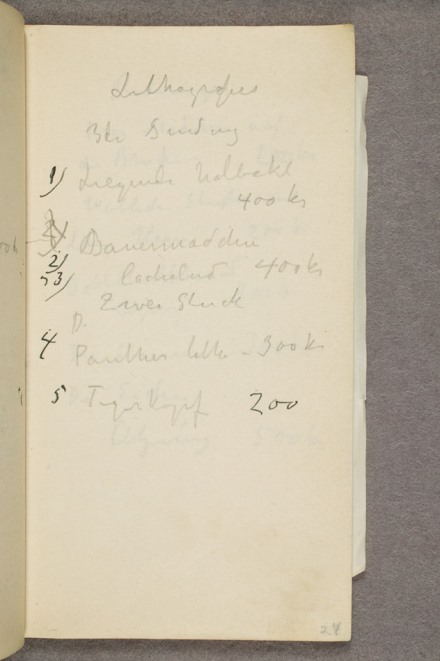 Lithografier
3te Sending
1) Liegender Halbakt
400 kr
2) Bauernmädchen
2)
3) lächelnd 400 kr
Zwei Stück
D.
4 Panther - 300 kr
5 Tigerkopf 200
24